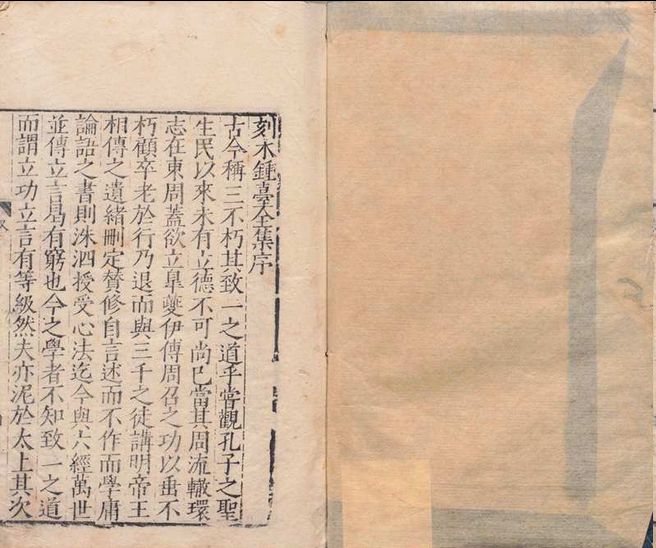 刻木鍾臺全集序
古今稱三不朽其致一之道乎嘗觀孔子之聖
生民以來未有立德不可尚已當其周流轍環
志在東周蓋欲立臯夔伊傅周召之功以垂不
朽顧卒老於行乃退而與三千之徒講明帝王
相傳之遺緒刪定賛修自言述而不作而學庸
論語之書則洙泗授受心法迄今與六經萬世
並傳立言曷有窮也今之學者不知致一之道
而謂立功立言有等級然夫亦泥於太上其次